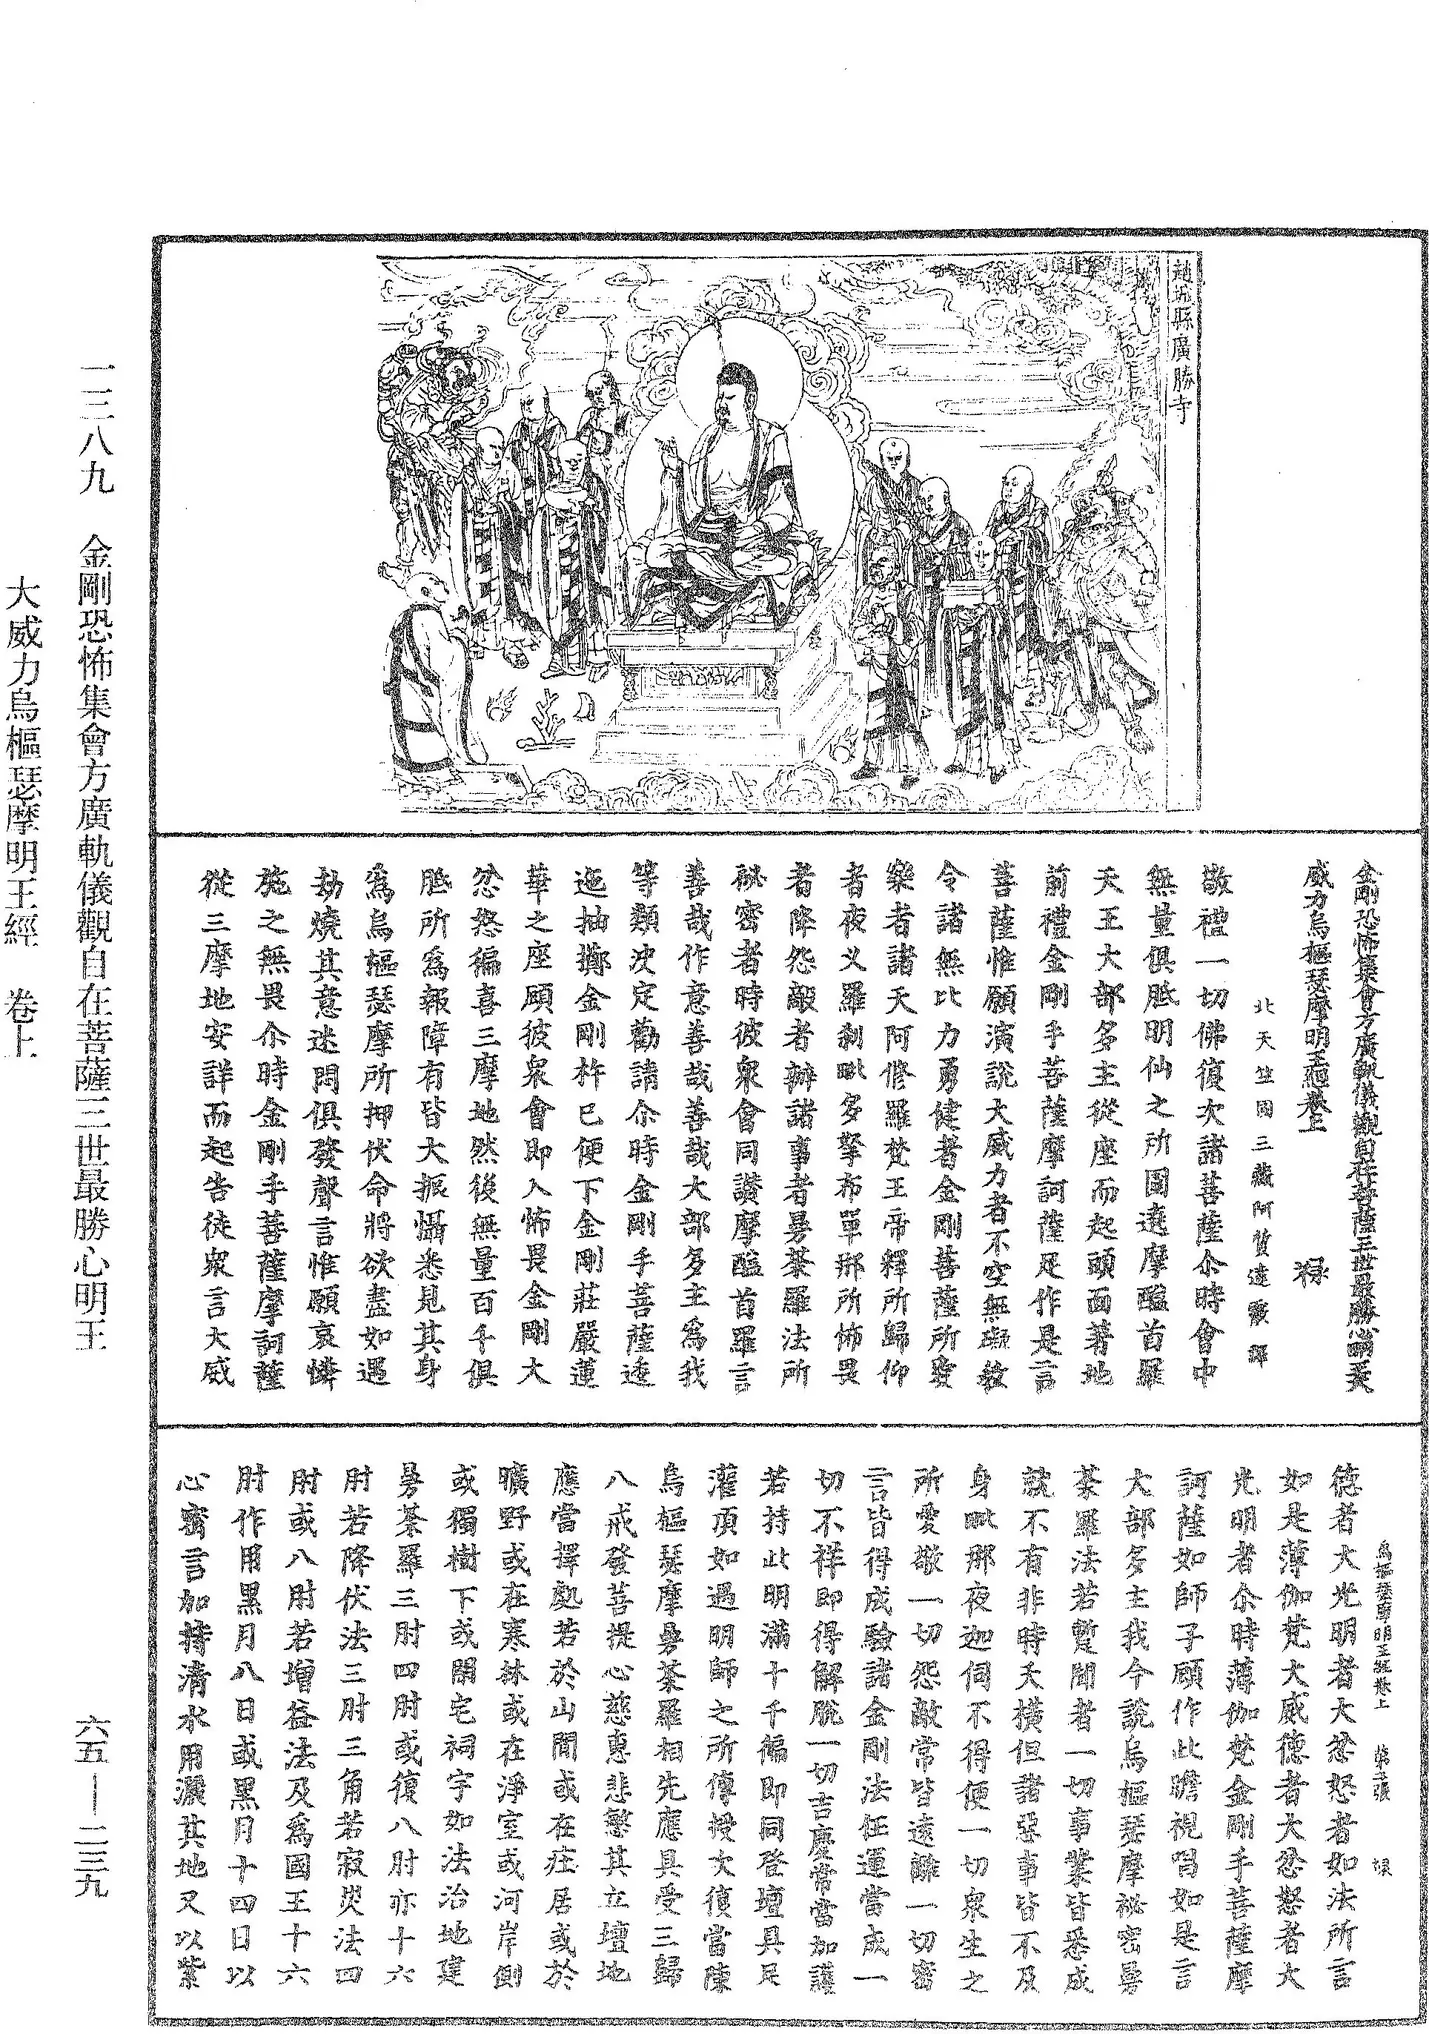 趙城縣廣勝寺
金剛恐怖集會方廣軌儀觀自在菩薩三世最勝心明王大
威力烏樞瑟摩明王經卷上　祿
北天竺國三藏阿質達霰譯
敬禮一切佛復次諸菩薩尒時會中
無量俱胝明仙之所圍遶摩醯首羅
天王大部多主從座而起頭面著地
前禮金剛手菩薩摩訶薩足作是言
菩薩惟願演說大威力者不空無礙教
令諸無比力勇健者金剛菩薩所愛
樂者諸天阿修羅梵王帝釋所歸仰
者夜叉羅剎毗多拏布單那所怖畏
者降怨敵者辦諸事者曼荼羅法所
祕密者時彼衆會同讚摩醯首羅言
善哉作意善哉善哉大部多主爲我
等類決定勸請尒時金剛手菩薩遶
迤抽擲金剛杵已便下金剛莊嚴蓮
華之座顧彼衆會即入怖畏金剛大
忿怒徧喜三摩地然後無量百千俱
胝所爲報障有皆大振懾悉見其身
爲烏樞瑟摩所押伏命將欲盡如遇
劫燒其意迷悶俱發聲言惟願哀憐
施之無畏尒時金剛手菩薩摩訶薩
從三摩地安詳而起告徒衆言大威
烏樞瑟摩明王經卷上　第二張　祿
德者大光明者大忿怒者如法所言
如是薄伽梵大威德者大忿怒者大
光明者尒時薄伽梵金剛手菩薩摩
訶薩如師子顧作此瞻視唱如是言
大部多主我今說烏樞瑟摩祕密曼
荼羅法若暫聞者一切事業皆悉成
就不有非時夭橫但諸惡事皆不及
身毗那夜迦伺不得便一切衆生之
所愛敬一切怨敵常皆遠離一切密
言皆得成驗諸金剛法任運當成一
切不祥即得解脫一切吉慶常當加護
若持此明滿十千徧即同登壇具足
灌頂如遇明師之所傳授次復當陳
烏樞瑟摩曼荼羅相先應具受三歸
八戒發菩提心慈惠悲愍其立壇地
應當擇處若於山間或在庄居或於
曠野或在寒林或在淨室或河岸側
或獨樹下或閑宅祠宇如法治地建
曼荼羅三肘四肘或復八肘亦十六
肘若降伏法三肘三角若寂災法四
肘或八肘若增益法及爲國王十六
肘作用黑月八日或黑月十四日以
心密言加持清水用灑其地又以紫
一三八九　金剛恐怖集會方廣軌儀觀自在菩薩三世最勝心明王
大威力烏樞瑟摩明王經　卷上
六五—二三九